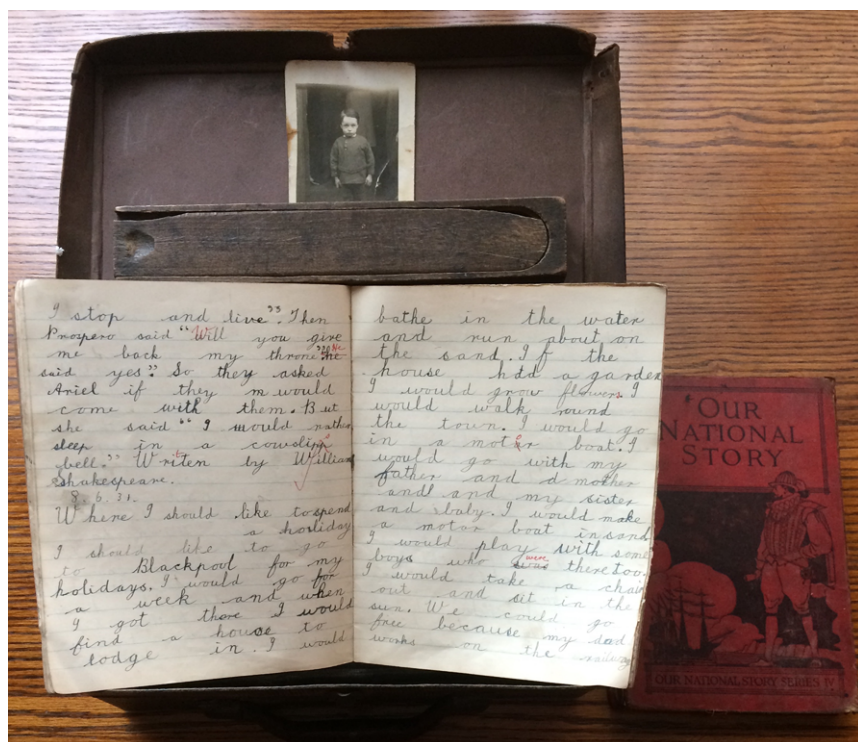 I stop and live". Then
Prospero said "Will you give
me back my throne". He
said yes." So they asked
Ariel if they m would
come with them. But
she said " I would rather
sleep in a cowslip
bell." Writen by William
Shakespeare.
8.6.31.
Where I should like to spend
a horliday
I should like to go
to Blackpool for my
holidays. I would go for
a week and when
I got there I would
find a house to
lodge in. I would
bathe in the water
and run about on
the sand. If the
house had a garden
I would grow flowers. I
would walk round
the town. I would go
in a motor boat. I
would go with my
father and d mother
andl and my sister
and baby. I would make
a motor boat in sand
I would play with some
boys who were there too.
I would take a chair
out and sit in the
sun. We could go
free because my dad
works on the railway
OUR
NATIONAL
STORY
OUR NATIONAL STORY SERIES IV